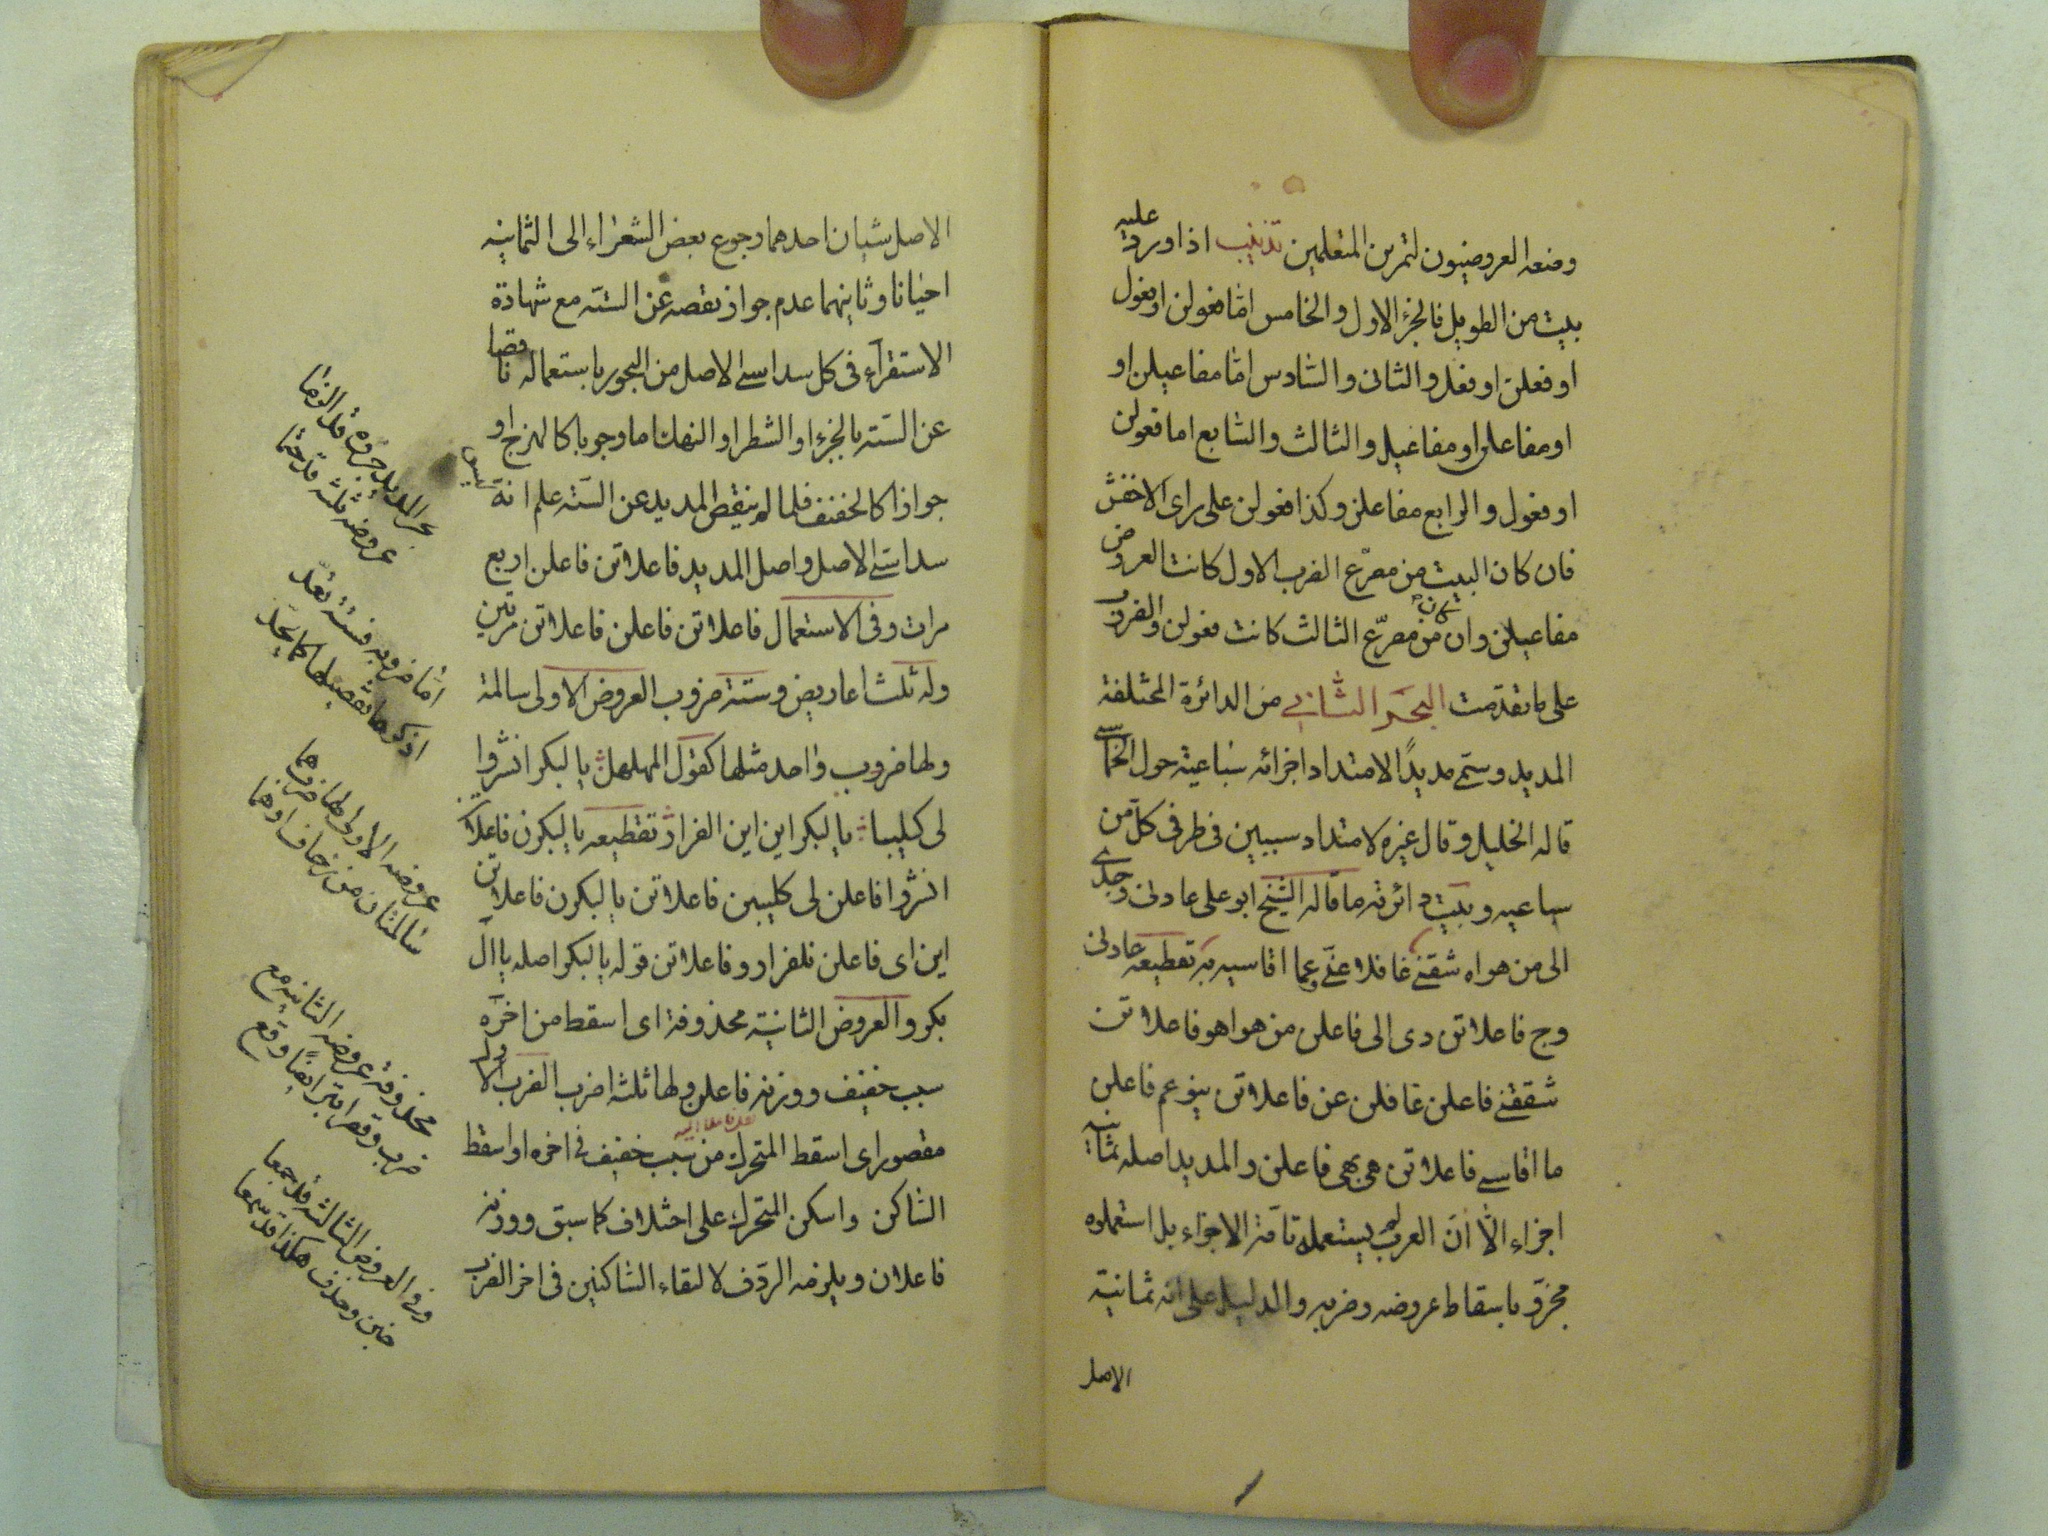 وضعه العروضيون لتمرين المتعلمين تذنيب اذا ورد عليه
بيت من الطويل فالجزء الاول والخامس امّا فعولن او فعول
او فعلن او فعل والثانى والسّادس امّا مفاعيلن او
او مفاعلن او مفاعيل والثالث والسّابع اما فعولن
او فعول والرابع مفاعلن وكذا فعولن على راى الاخفش
فان كان البيت من مصرّع الضرب الاول كانت العروض
مفاعيلن وان كان من مصرّع الثالث كانت فعولن والضروب
على ما تقدّمت البحر الثانى من الدائرة المختلفة
المديد وسمّى مديدًا لامتداد اجزائه سباعية حول الخماسى
قاله الخليل وقال غيره لامتداد سببين فى طرفى كلّ من
سباعيه وبيت دائرته ما قاله الشيخ ابو على عادلى وجدى
الى من هواه شقنى غافلا عنّى عما اقاسيه به تقطيعه عادلى
وج فاعلاتن دى الى فاعلن من هواهو فاعلاتن
شققنى فاعلن غافلن عن فاعلاتن نيوعم فاعلن
ما اقاسى فاعلاتن هى بهى فاعلن والمديد اصله ثمانية
اجزاء الّا انّ العرب لم يستعمله تامّة الاجزاء بل استعملوه
مجزوّ باسقاط عروضه وضربه والدليل على انه ثمانية
الاصل
الاصل شيأن احدهما رجوع بعض الشعراء الى الثمانية
احيانا وثانيهما عدم جواز نقصه عن الستّه مع شهادة
الاستقراء فى كل سداسى الاصل من البحور باستعماله ناقصا
عن الستة بالجزء او الشطر او النهك اما وجوبا كالهزج او
جوازا كالخفيف فلما لم ينقص المديد عن الستّة علم انه ليس
سداسى الاصل واصل المديد فاعلاتن فاعلن اربع
مرات وفى الاستعمال فاعلاتن فاعلن فاعلاتن مرّتين
وله ثلث اعاريض وستة ضروب العروض الاولى سالمة
ولها ضروب واحد مثلها كقول المهلهل يا لبكر انشروا
لى كليبا يا لبكر اين اين الفرار تقطيعه يا لبكرن فاعلاتن
انشروا فاعلن لى كليبن فاعلاتن يا لبكرن فاعلاتن
اين اى فاعلن نلفرارو فاعلاتن قوله يا لبكر اصله يا آل
بكر والعروض الثانية محذوفة اى اسقط من اخره
سبب خفيف ووزنه فاعلن ولها ثلثة اضرب الضرب الاول
مقصور اى اسقط المتحرك من سبب خفيف فى اخره او اسقط
السّاكن واسكن المتحرك على اختلاف كما سبق ووزنه
فاعلان ويلزمه الردف لالتقاء السّاكنين فى اخر الضرب
بحر المديد جزوه قد الزما
عروضه ثلثة قد حتما
امّا ضروبه فستّة تعدّ
اذكرها تفصيلها كما تجد
عروضه الاولى لها ضرب هما
سالمتان من زحاف اوهما
محذوفة عروضه الثانيه مع
ضرب وقصر ابتر ايضًا وقع
وفى العروض الثالثة قد جمعا
خبن وحذف هكذا قد سمعا